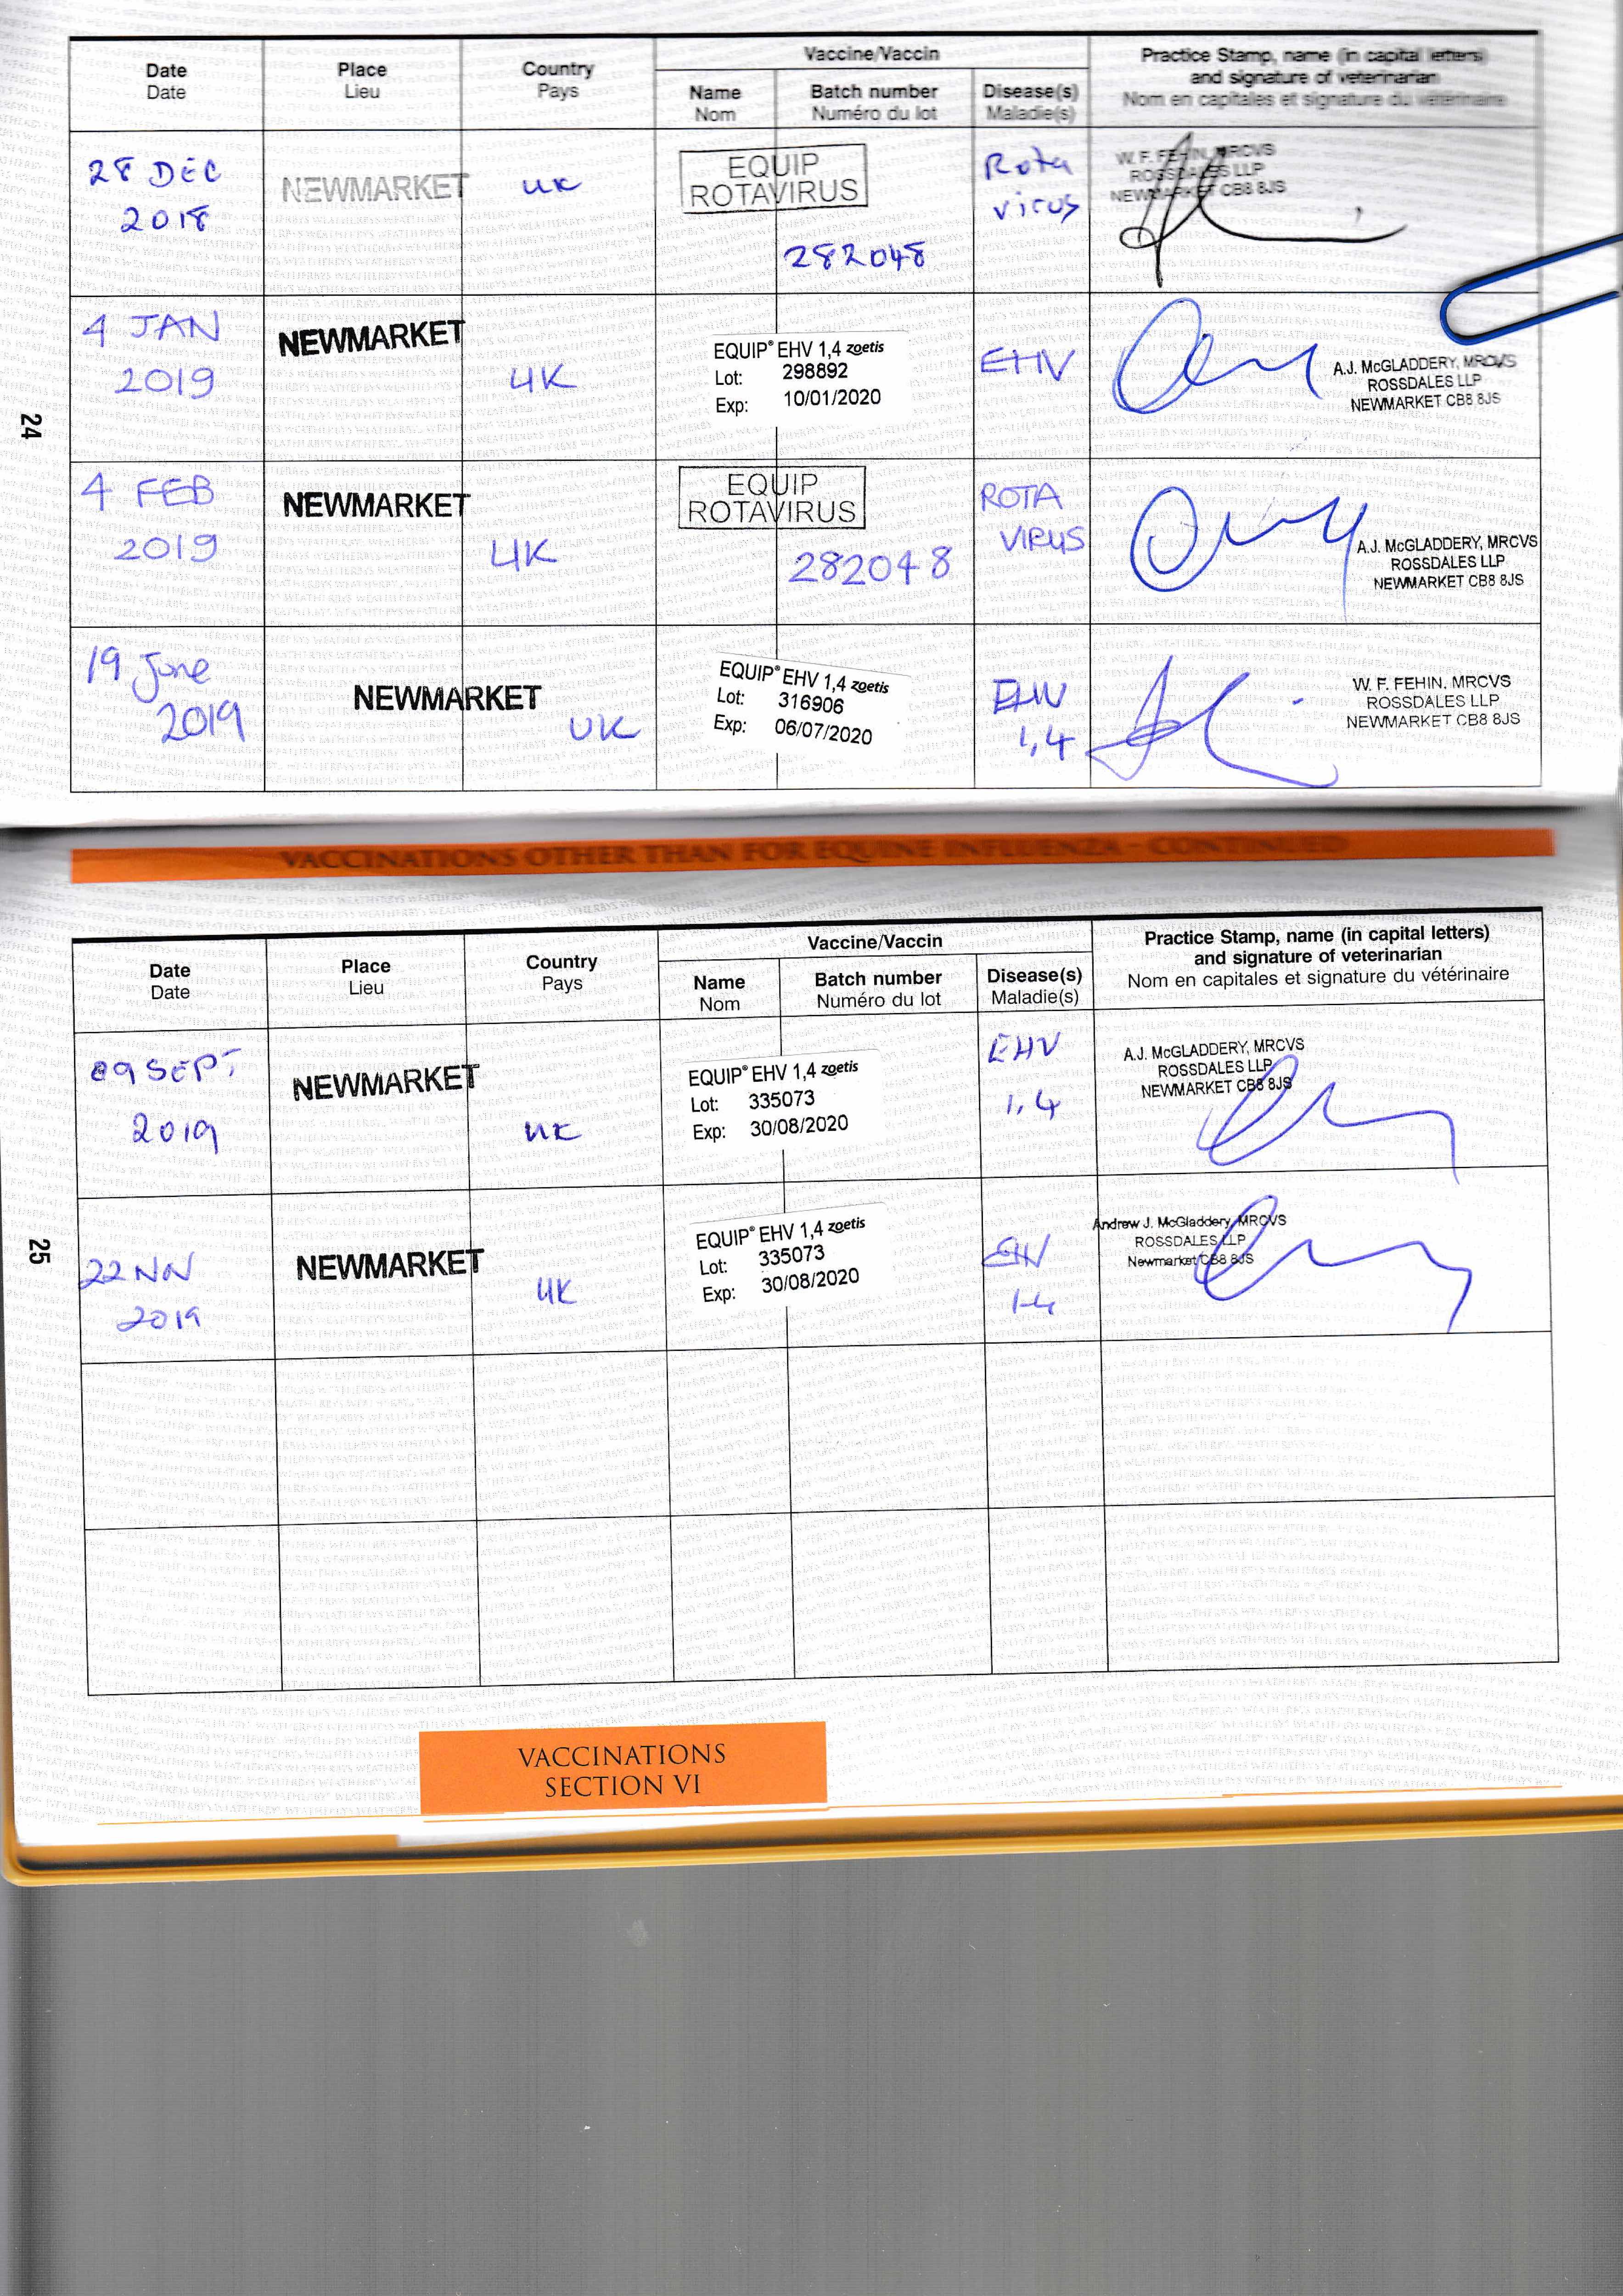 Vaccine/Vaccin
Practice Stamp, name (in capital letters)
and signature of veterinarian
Nom en capitales et signature du vétérinaire
Date
Date
Place
Lieu
Country
Pays
Name
Nom
Batch number
Numéro du lot
Disease(s)
Maladie(s)
28 DEC
2018
NEWMARKET
UK
EQUIP
ROTAVIRUS
282048
Rota
virus
W. F. FEHIN, MRCVS
ROSSDALES LLP
NEWMARKET CB8 8JS
4 JAN
2019
NEWMARKET
UK
EQUIP® EHV 1,4 zoetis
Lot: 298892
Exp: 10/01/2020
EHV
A.J. McGLADDERY, MRCVS
ROSSDALES LLP
NEWMARKET CB8 8JS
24
4 FEB
2019
NEWMARKET
UK
EQUIP
ROTAVIRUS
282048
ROTA
VIRUS
A.J. McGLADDERY, MRCVS
ROSSDALES LLP
NEWMARKET CB8 8JS
19 June
2019
NEWMARKET
UK
EQUIP® EHV 1,4 zoetis
Lot: 316906
Exp: 06/07/2020
EHV
1,4
W. F. FEHIN, MRCVS
ROSSDALES LLP
NEWMARKET CB8 8JS
VACCINATIONS OTHER THAN FOR EQUINE INFLUENZA - CONTINUED
Vaccine/Vaccin
Practice Stamp, name (in capital letters)
and signature of veterinarian
Nom en capitales et signature du vétérinaire
Date
Date
Place
Lieu
Country
Pays
Name
Nom
Batch number
Numéro du lot
Disease(s)
Maladie(s)
09 SEPT
2019
NEWMARKET
UK
EQUIP® EHV 1,4 zoetis
Lot: 335073
Exp: 30/08/2020
EHV
1,4
A.J. McGLADDERY, MRCVS
ROSSDALES LLP
NEWMARKET CB8 8JS
25
22 NOV
2019
NEWMARKET
UK
EQUIP® EHV 1,4 zoetis
Lot: 335073
Exp: 30/08/2020
EHV
1-4
Andrew J. McGladdery, MRCVS
ROSSDALES LLP
Newmarket CB8 8JS
VACCINATIONS
SECTION VI